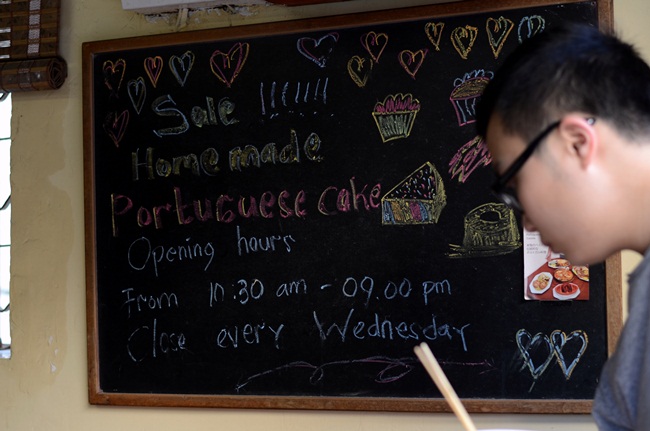 Sale !!!!!!!
Home made
Portuguese cake
Opening hours
From 10:30 am - 09.00 pm
Close every Wednesday